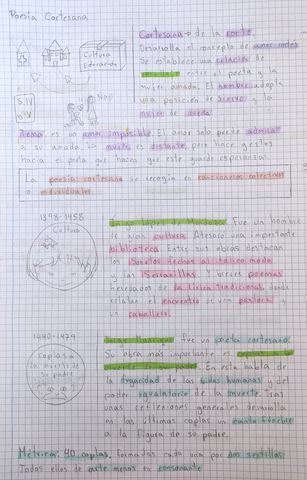 Poesía Cortesana
Cortesana → de la corte.
Cultura
Educación
Desarrolla el concepto de amor cortés
Se establece una relación de
entre el poeta y la
mujer amada. El hombre adopta
una posición de siervo y la
mujer de
S.IV
Tema es un amor imposible. El amor solo puede admirar
a su amada. La mujer es distante, pero hace gestos
hacia el poeta que hacen que este guarde esperanza.
La poesía cortesana se recogía en cancioneros colectivos
o individuales
1398-1458
Cultura
López de Mendoza. Fue un hombre
de gran cultura. Atesoró una importante
biblioteca. Entre sus obras destacan
los Sonetos fechos al itálico modo
y las Serranillas. Y breves poemas
heredados de la lírica tradicional, donde
relatan el encuentro de una pastora y
un caballero.
1440-1479
Coplas a
la muerte de
su padre
Jorge Manrique fue un poeta cortesano.
Su obra más importante es coplas a la
muerte de su padre. En esta habla de
la fugacidad de las vidas humanas y del
poder igualatorio de la muerte. Tras
unas reflexiones generales desarrolla
en las últimas coplas un canto fúnebre
a la figura de su padre.
Métrica: 40 coplas, formadas cada una por dos sextillas.
Todas ellas de arte menor en consonante